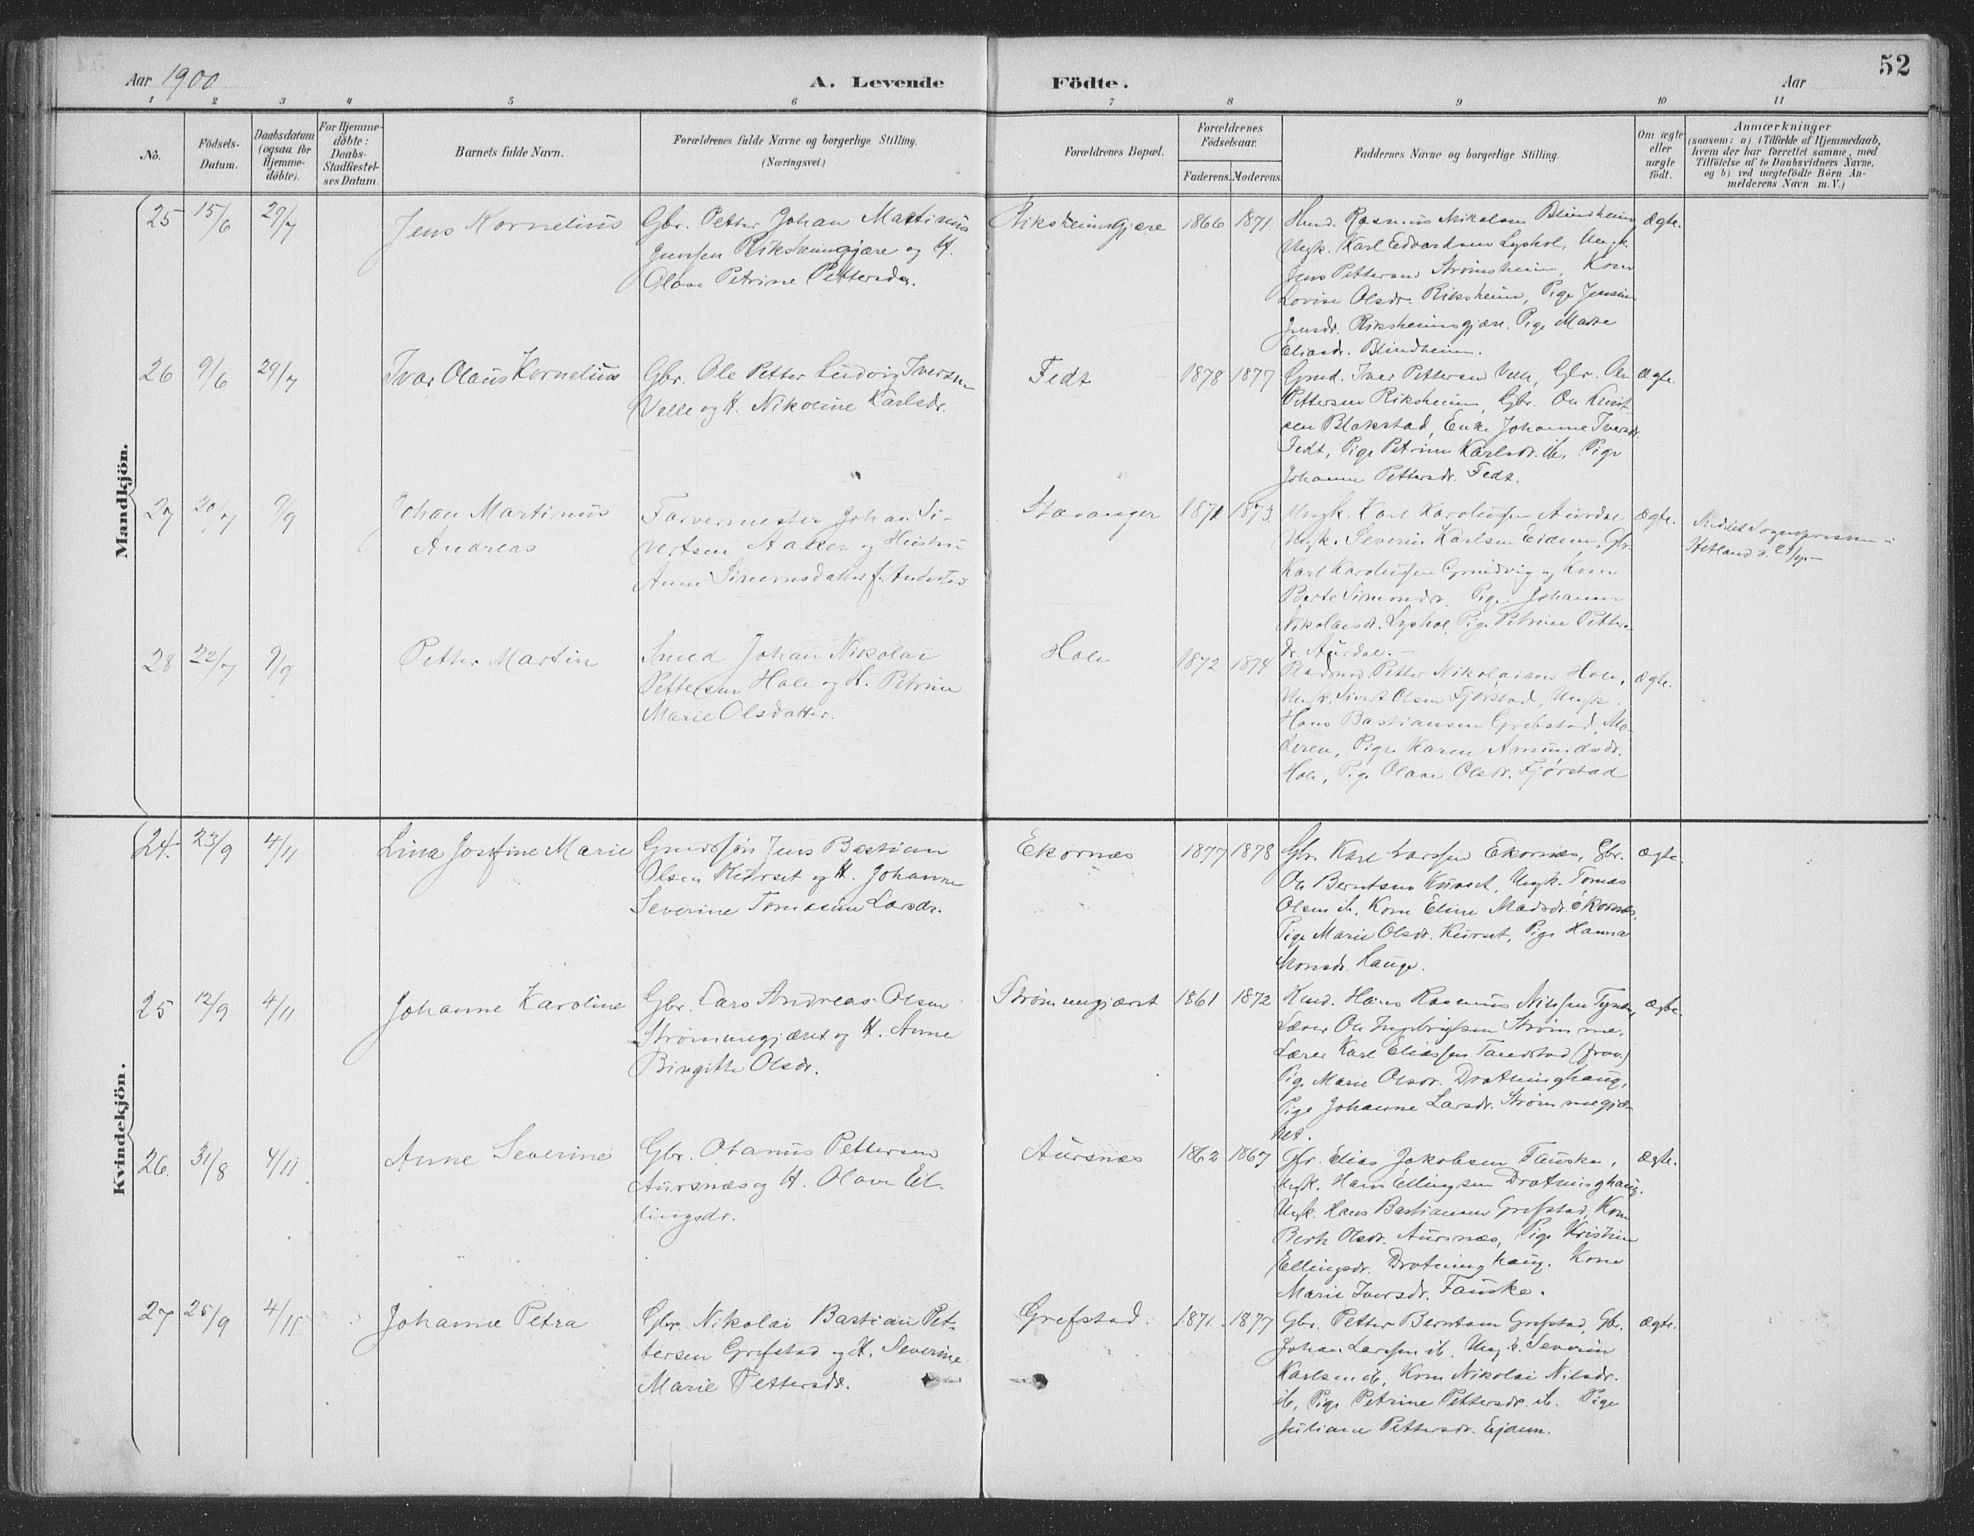 Aar 1900
A. Levende
Födte.
Aar
52
1 2 3 4 5 6 7 8 9 10 11
No.
Födsels-
Datum.
Daabsdatum
(ogsaa for
Hjemme-
döbte).
For Hjemme-
döbte:
Daabs-
Stadfæstel-
ses Datum.
Barnets fulde Navn.
Forældrenes fulde Navne og borgerlige Stilling.
(Næringsvei.)
Forældrenes Bopæl.
Forældrenes
Födselsaar.
Faderens. Moderens.
Faddernes Navne og borgerlige Stilling.
Om ægte
eller
uægte
födt.
Anmærkninger
(saasom: a) i Tilfælde af Hjemmedaab,
hvem der har forrettet samme, med
Tilföielse af to Daabsvidners Navne,
og b) ved uægtefödte Börn An-
melderens Navn m. V.)
Mandkjön.
25 15/6 29/7
Jens Kornelius
Gbr. Petter Johan Martinus
Jenssen Riksheimgjære og H.
Olave Petrine Pettersdr.
Riksheimgjære
1866 1871
Rasmus Nikolsen Blindheim
Ungk. Karl Edvardsen Lyshol, Ungk.
Jens Petter Strømsheim, Kone
Lovise Olsdr. Riksheim, Pige Jensine
Jensdr. Riksheimsgjære, Pige Marte
Eliasdr. Blindheim.
ægte.
26 9/6 29/7
Ivar Olaus Kornelius
Gbr. Ole Petter Ludvig Iversen
Velle og H. Nikoline Karlsdr.
Fedt
1878 1877
Iver Pettersen Velle, Gbr. Ole
Pettersen Riksheim, Gbr. Ole Knut-
sen Blakstad, Enke Johanne Iversdr.
Fedt, Pige Petrine Karlsdr. ib, Pige
Johanne Pettersdr. Fedt.
ægte.
27 20/7 9/9
Johan Martinus
Andreas
Farvermester Johan Si-
vertsen Aaker og Hustru
Anne Simonsdatter f.
Stavanger
1871 1873.
Ungk. Karl Karolussen Aurdal
Ungk. Severin Karlsen Eidem, Gbr
Karl Karolussen Grundvig og Kone
Berte Simonsdr. Pige Johanne
Nikolaisdr. Lyshol, Pige Petrine Petters-
dr. Aurdal.
ægte.
Meddelt Sognepresten i
Hetland
28 22/7 9/9
Petter Martin
Smed Johan Nikolai
Pettersen Hole og H. Petrine
Marie Olsdatter.
Hole
1872 1874
Petter Nikolaisen Hole,
Ungk. Sivert Olsen Fjørstad, Ungk.
Hans Bastiansen Grebstad, Mo-
deren, Pige Karen Amundsdr.
Hole, Pige Olave Olsdr. Fjørstad
ægte.
Kvindekjön.
24. 23/9 4/11
Lina Josefine Marie
Gaardsøn Jens Bastian
Olsen Kurset og H. Johanne
Severine Tomasine Larsdr.
Ekornæs
1877 1878
Gbr. Karl Larssen Ekornæs, Gbr.
Ole Berntsen Kurset, Ungk. Tomas
Olsen ib, Kone Eline Madsdr. Ekornæs,
Pige Marie Olsdr. Kurset, Pige Hanna
Monsdr. Hauge.
ægte.
25 12/9 4/11
Johanne Karoline
Gbr. Lars Andreas Olsen
Strømmegjæret og H. Anne
Birgitte Olsdr.
Strømmegjæret
1861 1872
Hans Rasmus Nilssen
Lærer Ole Ingebrigtsen Strømme,
Lærer Karl Eliassen Tandstad (frav.)
Pige Marie Olsdr. Drotninghaug,
Pige Johanne Larsdr. Strømmegjæ-
ret.
ægte.
26. 31/8 4/11
Anne Severine
Gbr. Otanus Pettersen
Aursnæs og H. Olave El-
lingsdr.
Aursnæs
1862 1867
Gbr. Elias Jakobsen Fauske,
Ungk. Hans Ellingsen Drotninghaug,
Ungk. Hans Bastiansen Grefstad, Kone
Berte Olsdr. Aursnæs, Pige Kristine
Ellingsdr. Drotninghaug. Kone
Marie Iversdr. Fauske.
ægte.
27 25/9 4/11
Johanne Petra
Gbr. Nikolai Bastian Pet-
tersen Grefstad og H. Severine
Marie Pettersdr.
Grefstad.
1871. 1877
Gbr. Petter Berntsen Grefstad, Gbr.
Johan Larssen ib. Ungk. Severin
Karlsen ib, Kone Nikolai Nilsdr.
ib, Pige Petrine Pettersdr. ib. Pige
Juliane Pettersdr. Ejdem.
ægte.